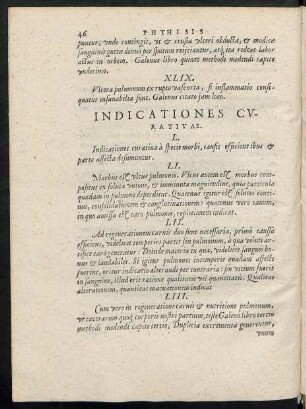 46 PHTHISIS
puntur, unde contingit, ut & crusta ulceri obducta, & modicæ
sanguinis guttæ denuò per sputum reijciantur, atq; ita redeat labor
actus in orbem. Galenus libro quinto methodi medendi capite
undecimo.
XLIX.
Ulcera pulmonum ex rupto vase orta, si inflammatio conse-
quatur insanabilia sunt. Galenus citato jam loco.
INDICATIONES CV-
RATIVAE.
L.
Indicationes curativæ à specie morbi, causis efficientibus &
parte affecta desumuntur.
LI.
Morbus est ulcus pulmonis. Ulcus autem est morbus com-
positus ex soluta unione, & imminuta magnitudine, quia particula
quædam in pulmone deperditur. Quatenus igitur est solutio conti-
nui, consolidationem & conglutinationem: quatenus verò cavum,
in quo amissa est caro pulmonis, repletionem indicat.
LII.
Ad regenerationem carnis duo sunt necessaria, primò causa
efficiens, videlicet temperies partis seu pulmonum, à qua veluti arti-
fice caro generatur: Deinde materia ex qua, videlicet sanguis bo-
nus & laudabilis. Si igitur pulmones intemperie aliqua affecti
fuerint, oritur indicatio alterandi per contraria: sin vitium fuerit
in sanguine, illud erit ratione qualitatis vel quantitatis. Qualitas
alterationem, quantitas evacuationem indicat.
LIII.
Cum verò in regeneratione carnis & nutritione pulmonum,
ut cæterarum quoq; corporis nostri partium, teste Galeno libro tertio
methodi medendi capite tertio, Duplicia excrementa generentur,
unum